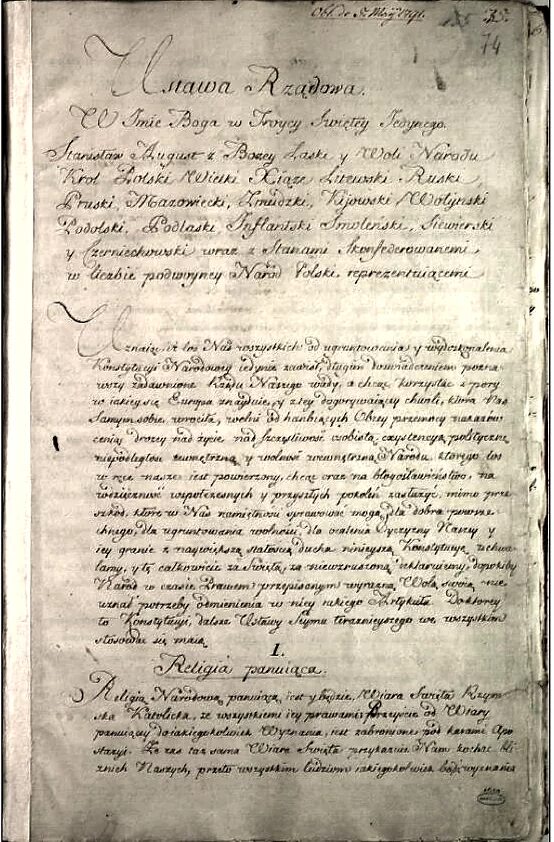 Obl. de 5. Maji 1791.
74
Ustawa Rządowa.
W Imie Boga w Troycy Swiętey Jedynego.
Stanisław August z Bozey Łaski y Woli Narodu
Krol Polski Wielki Xiąze Litewski Ruski
Pruski, Mazowiecki, Zmudzki, Kijowski Wołynski
Podolski, Podlaski Inflantski Smoleński, Siewierski
y Czerniechowski wraz z Stanami Skonfederowanemi
w liczbie podwoyney Narod Polski reprezentuiącemi
Uznaiąc, iż los Nas wszystkich od ugruntowania y wydoskonalenia
Konstytucyi Narodowey iedynie zawisł, długim doswiadczeniem pozna-
wszy zadawnione Rządu Naszego wady, a chcąc korzystac z pory
w iakiey się Europa znayduie, y z tey dogorywaiącey chwili, ktora Nas
samym sobie wrociła, wolni od hanbiących Obcey przemocy nakazow
ceniąc drozey nad zycie, nad szczęsliwosc osobistą, exystencyą polityczną
niepodległosc zewnętrzną y wolnosc wewnętrzną Narodu, ktorego los
w ręce nasze iest powierzony, chcąc oraz na błogosławieństwo, na
wdzięcznosc wspołczesnych y przyszłych pokolen zasłuzyc, mimo prze-
szkod, ktore w Nas namiętnosci sprawowac mogą, dla dobra powsze-
chnego, dla ugruntowania wolnosci, dla ocalenia Oyczyzny Naszey y
iey granic z naywiększą stałoscią ducha ninieyszą Konstytucyę uchwa-
lamy, y tę całkowicie za Swiętą, za niewzruszoną deklaruiemy, dopokiby
Narod w czasie Prawem przepisanym wyrazną Wolą swoią nie
uznał potrzeby odmienienia w niey iakiego Artykułu. Do ktorey
to Konstytucyi, dalsze Ustawy Seymu teraznieyszego we wszystkim
stosowac się maią
I.
Religia panuiąca.
Religią Narodową panuiącą iest y będzie Wiara Swięta Rzym-
ska Katolicka, ze wszystkiemi iey prawami. Przeyscie od Wiary
panuiącey do iakiegokolwiek Wyznania, iest zabronione pod karami Apo-
stazyi. Ze zas taz sama Wiara Swięta przykazuie Nam kochac bli-
znich Naszych, przeto wszystkim ludziom iakiegokolwiek bądz wyznania